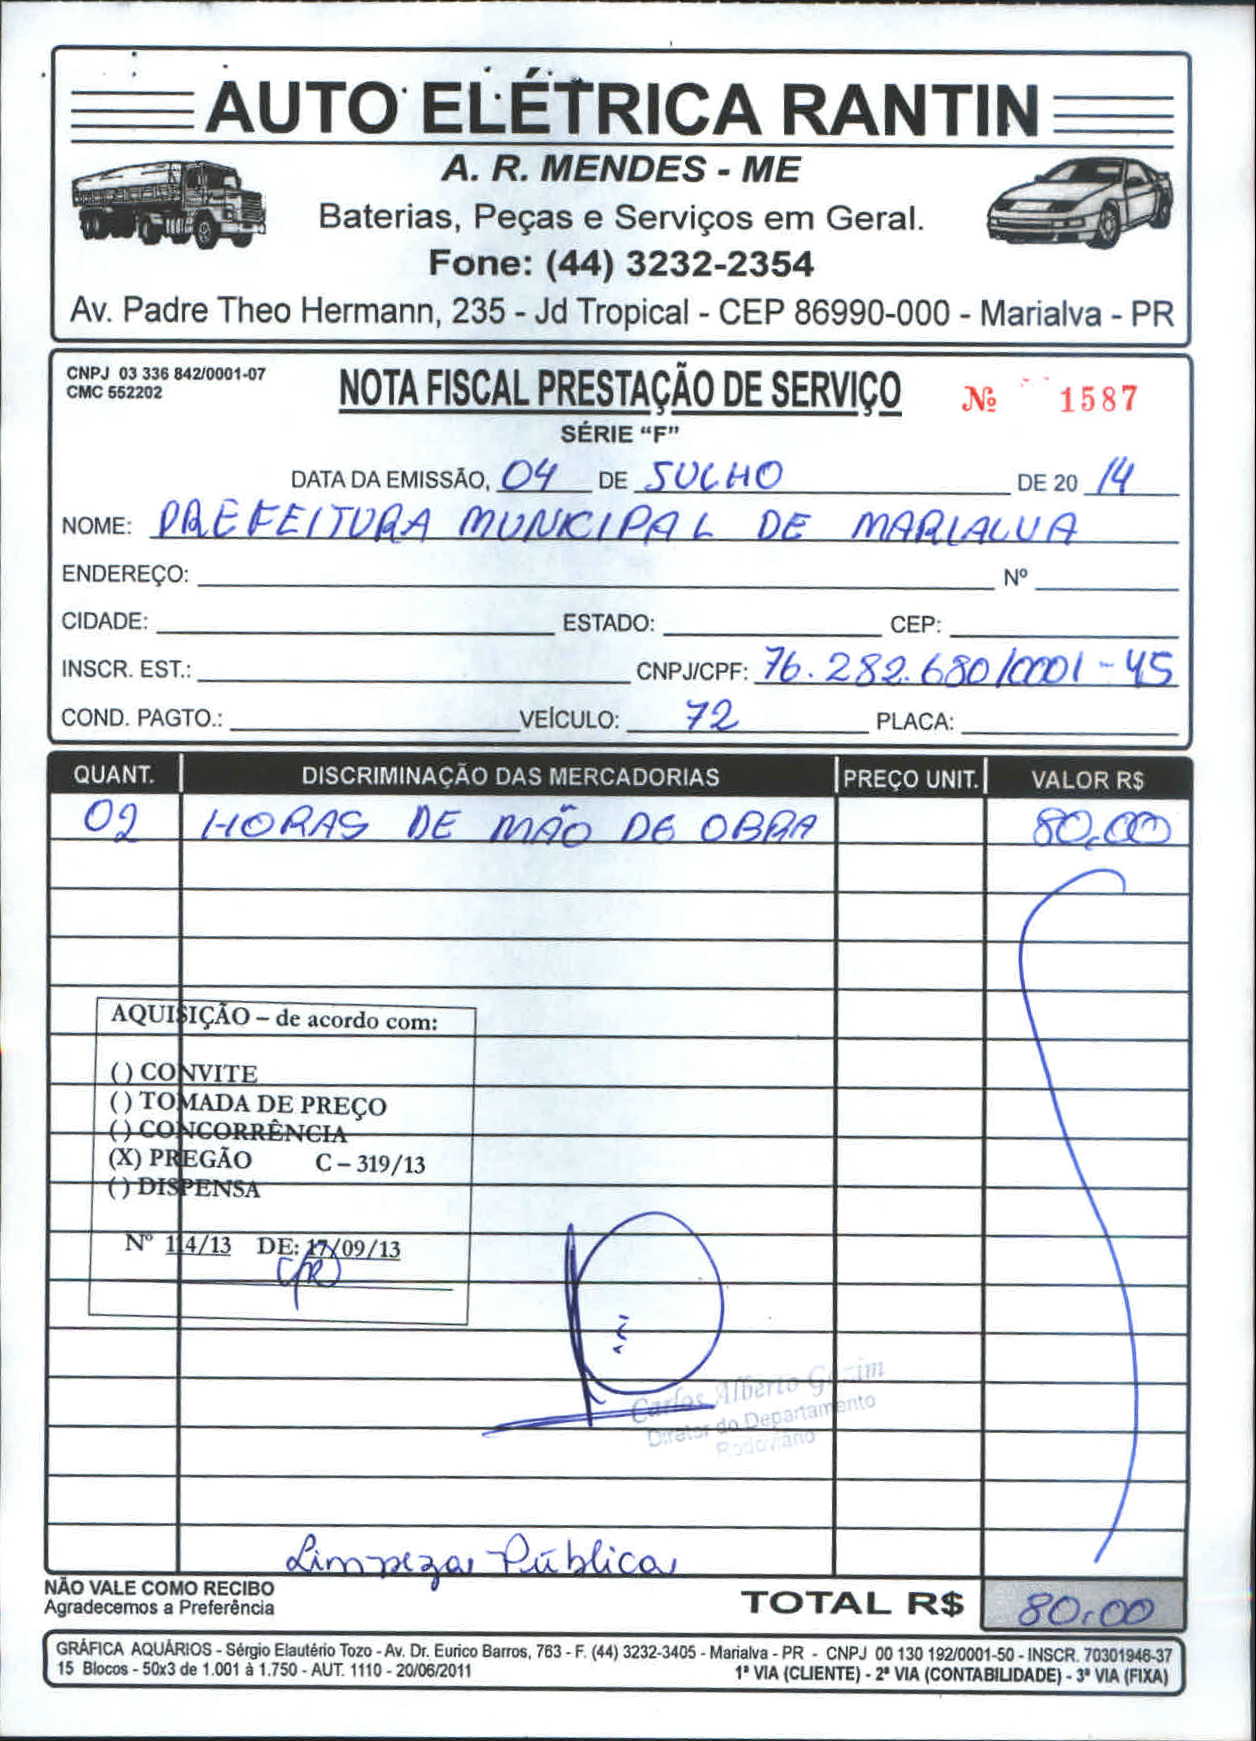 AUTO ELÉTRICA RANTIN
A. R. MENDES - ME
Baterias, Peças e Serviços em Geral.
Fone: (44) 3232-2354
Av. Padre Theo Hermann, 235 - Jd Tropical - CEP 86990-000 - Marialva - PR
CNPJ 03 336 842/0001-07
CMC 552202
NOTA FISCAL PRESTAÇÃO DE SERVIÇO
Nº 1587
SÉRIE “F”
DATA DA EMISSÃO, 04 DE JULHO DE 20 14
NOME: PREFEITURA MUNICIPAL DE MARIALVA
ENDEREÇO: Nº
CIDADE: ESTADO: CEP:
INSCR. EST.: CNPJ/CPF: 76.282.680/0001-45
COND. PAGTO.: VEÍCULO: 72 PLACA:
QUANT. DISCRIMINAÇÃO DAS MERCADORIAS PREÇO UNIT. VALOR R$
02 HORAS DE MÃO DE OBRA 80,00
AQUISIÇÃO – de acordo com:
( ) CONVITE
( ) TOMADA DE PREÇO
( ) CONCORRÊNCIA
(X) PREGÃO C – 319/13
( ) DISPENSA
Nº 114/13 DE: 17/09/13
Carlos Alberto
Diretor do Departamento
Rodoviário
Limpeza Pública
NÃO VALE COMO RECIBO
Agradecemos a Preferência
TOTAL R$ 80,00
GRÁFICA AQUÁRIOS - Sérgio Elautério Tozo - Av. Dr. Eurico Barros, 763 - F. (44) 3232-3405 - Marialva - PR - CNPJ 00 130 192/0001-50 - INSCR. 70301946-37
15 Blocos - 50x3 de 1.001 à 1.750 - AUT. 1110 - 20/06/2011
1ª VIA (CLIENTE) - 2ª VIA (CONTABILIDADE) - 3ª VIA (FIXA)